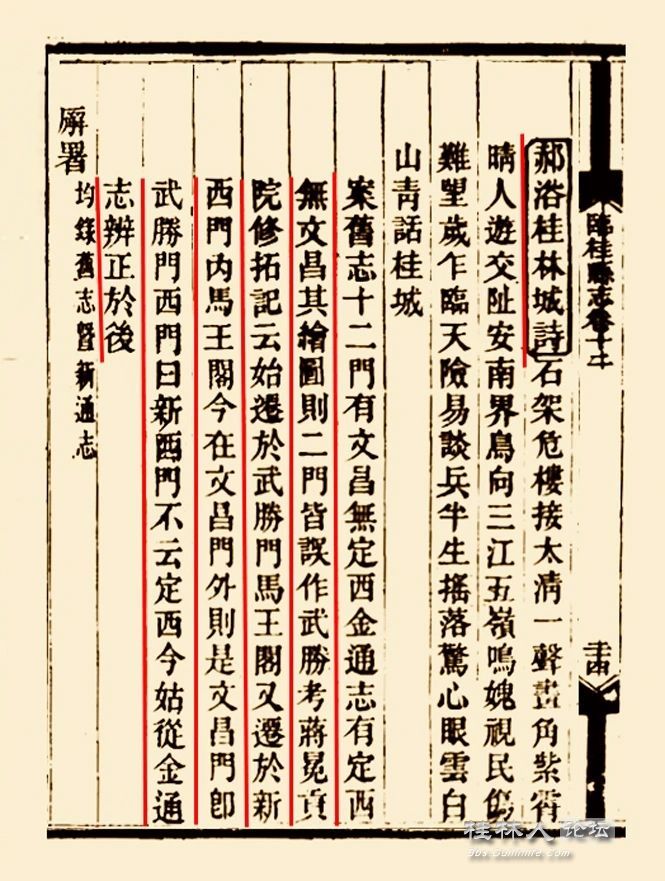 臨桂縣志卷十二
郝浴桂林城詩石架危樓接太清一聲畫角紫霄
晴人遊交阯安南界鳥向三江五嶺鳴媿視民傷
難望歲乍臨天險易談兵半生搖落驚心眼雲白
山青話桂城
案舊志十二門有文昌無定西金通志有定西
無文昌其繪圖則二門皆誤作武勝考蔣冕貢
院修拓記云始遷於武勝門馬王閣又遷於新
西門內馬王閣今在文昌門外則是文昌門卽
武勝門西門曰新西門不云定西今姑從金通
志辨正於後
廨署
均錄舊志曁新通志
桂林人论坛